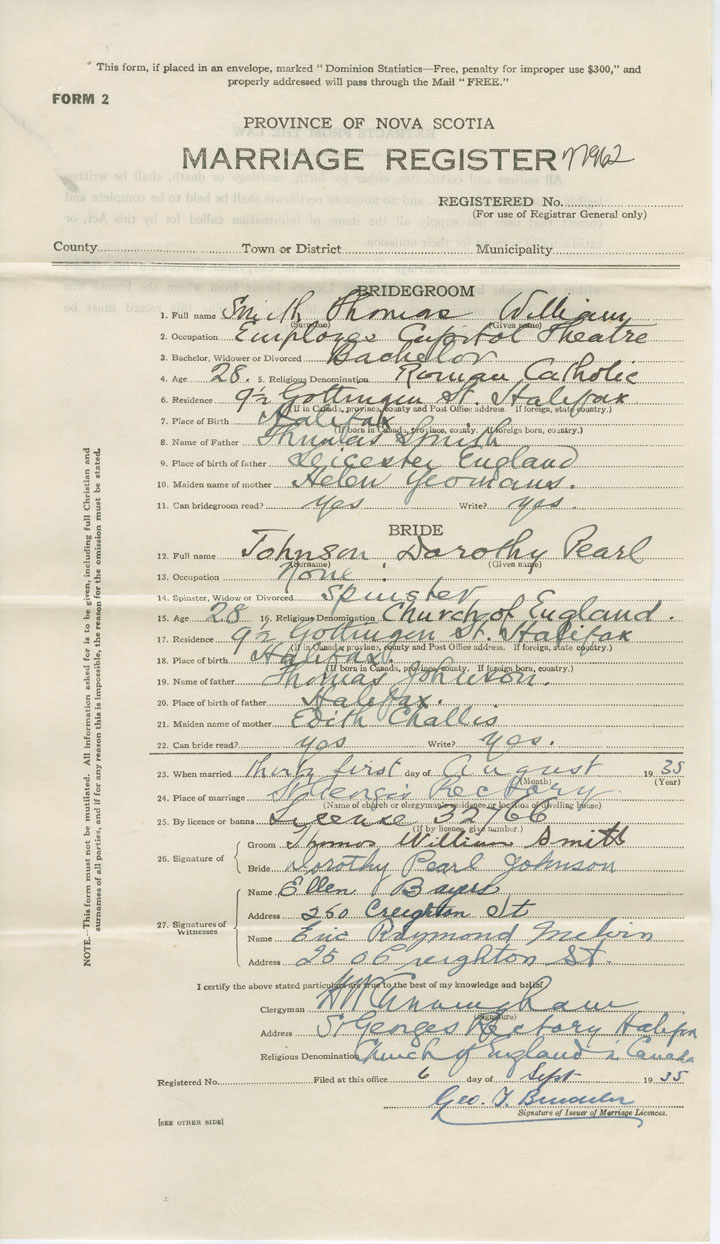 * This form, if placed in an envelope, marked "Dominion Statistics—Free, penalty for improper use $300," and
properly addressed will pass through the Mail "FREE."
FORM 2
PROVINCE OF NOVA SCOTIA
MARRIAGE REGISTER
REGISTERED No.
(For use of Registrar General only)
County Town or District Municipality
BRIDEGROOM
1. Full name Smith Thomas William
(Surname) (Given name)
2. Occupation Employee Capitol Theatre
3. Bachelor, Widower or Divorced Bachelor
4. Age 28. 5. Religious Denomination Roman Catholic
6. Residence 92 Gottingen St. Halifax
(If in Canada, province, county and Post Office address. If foreign, state country.)
7. Place of Birth Halifax
(If born in Canada, province, county. If foreign born, country.)
8. Name of Father Thomas Smith
9. Place of birth of father Leicester England
10. Maiden name of mother Helen Yeomans.
11. Can bridegroom read? yes Write? yes.
BRIDE
12. Full name Johnson Dorothy Pearl
(Surname) (Given name)
13. Occupation None.
14. Spinster, Widow or Divorced Spinster
15. Age 28 16. Religious Denomination Church of England.
17. Residence 92 Gottingen St. Halifax
(If in Canada, province, county and Post Office address. If foreign, state country.)
18. Place of birth Halifax.
(If born in Canada, province, county. If foreign born, country.)
19. Name of father Thomas Johnson.
20. Place of birth of father Halifax.
21. Maiden name of mother Edith Challis
22. Can bride read? yes Write? yes.
23. When married thirty first day of August 1935
(Month) (Year)
24. Place of marriage St George's Rectory
(Name of church or clergyman's residence or location of dwelling house)
25. By licence or banns License 32766
(If by licence, give number.)
26. Signature of
Groom Thomas William Smith
Bride Dorothy Pearl Johnson
27. Signatures of Witnesses
Name Ellen Bayers
Address 250 Creighton St
Name Eric Raymond Melvin
Address 250 Creighton St.
I certify the above stated particulars are true to the best of my knowledge and belief.
Clergyman H Cunningham
(Signature)
Address St Georges Rectory Halifax
Religious Denomination Church of England in Canada
Registered No. Filed at this office 6 day of Sept 1935
Geo. T.
Signature of Issuer of Marriage Licences.
[SEE OTHER SIDE]
NOTE.—This form must not be mutilated. All information asked for is to be given, including full Christian and
surnames of all parties, and if for any reason this is impossible, the reason for the omission must be stated.